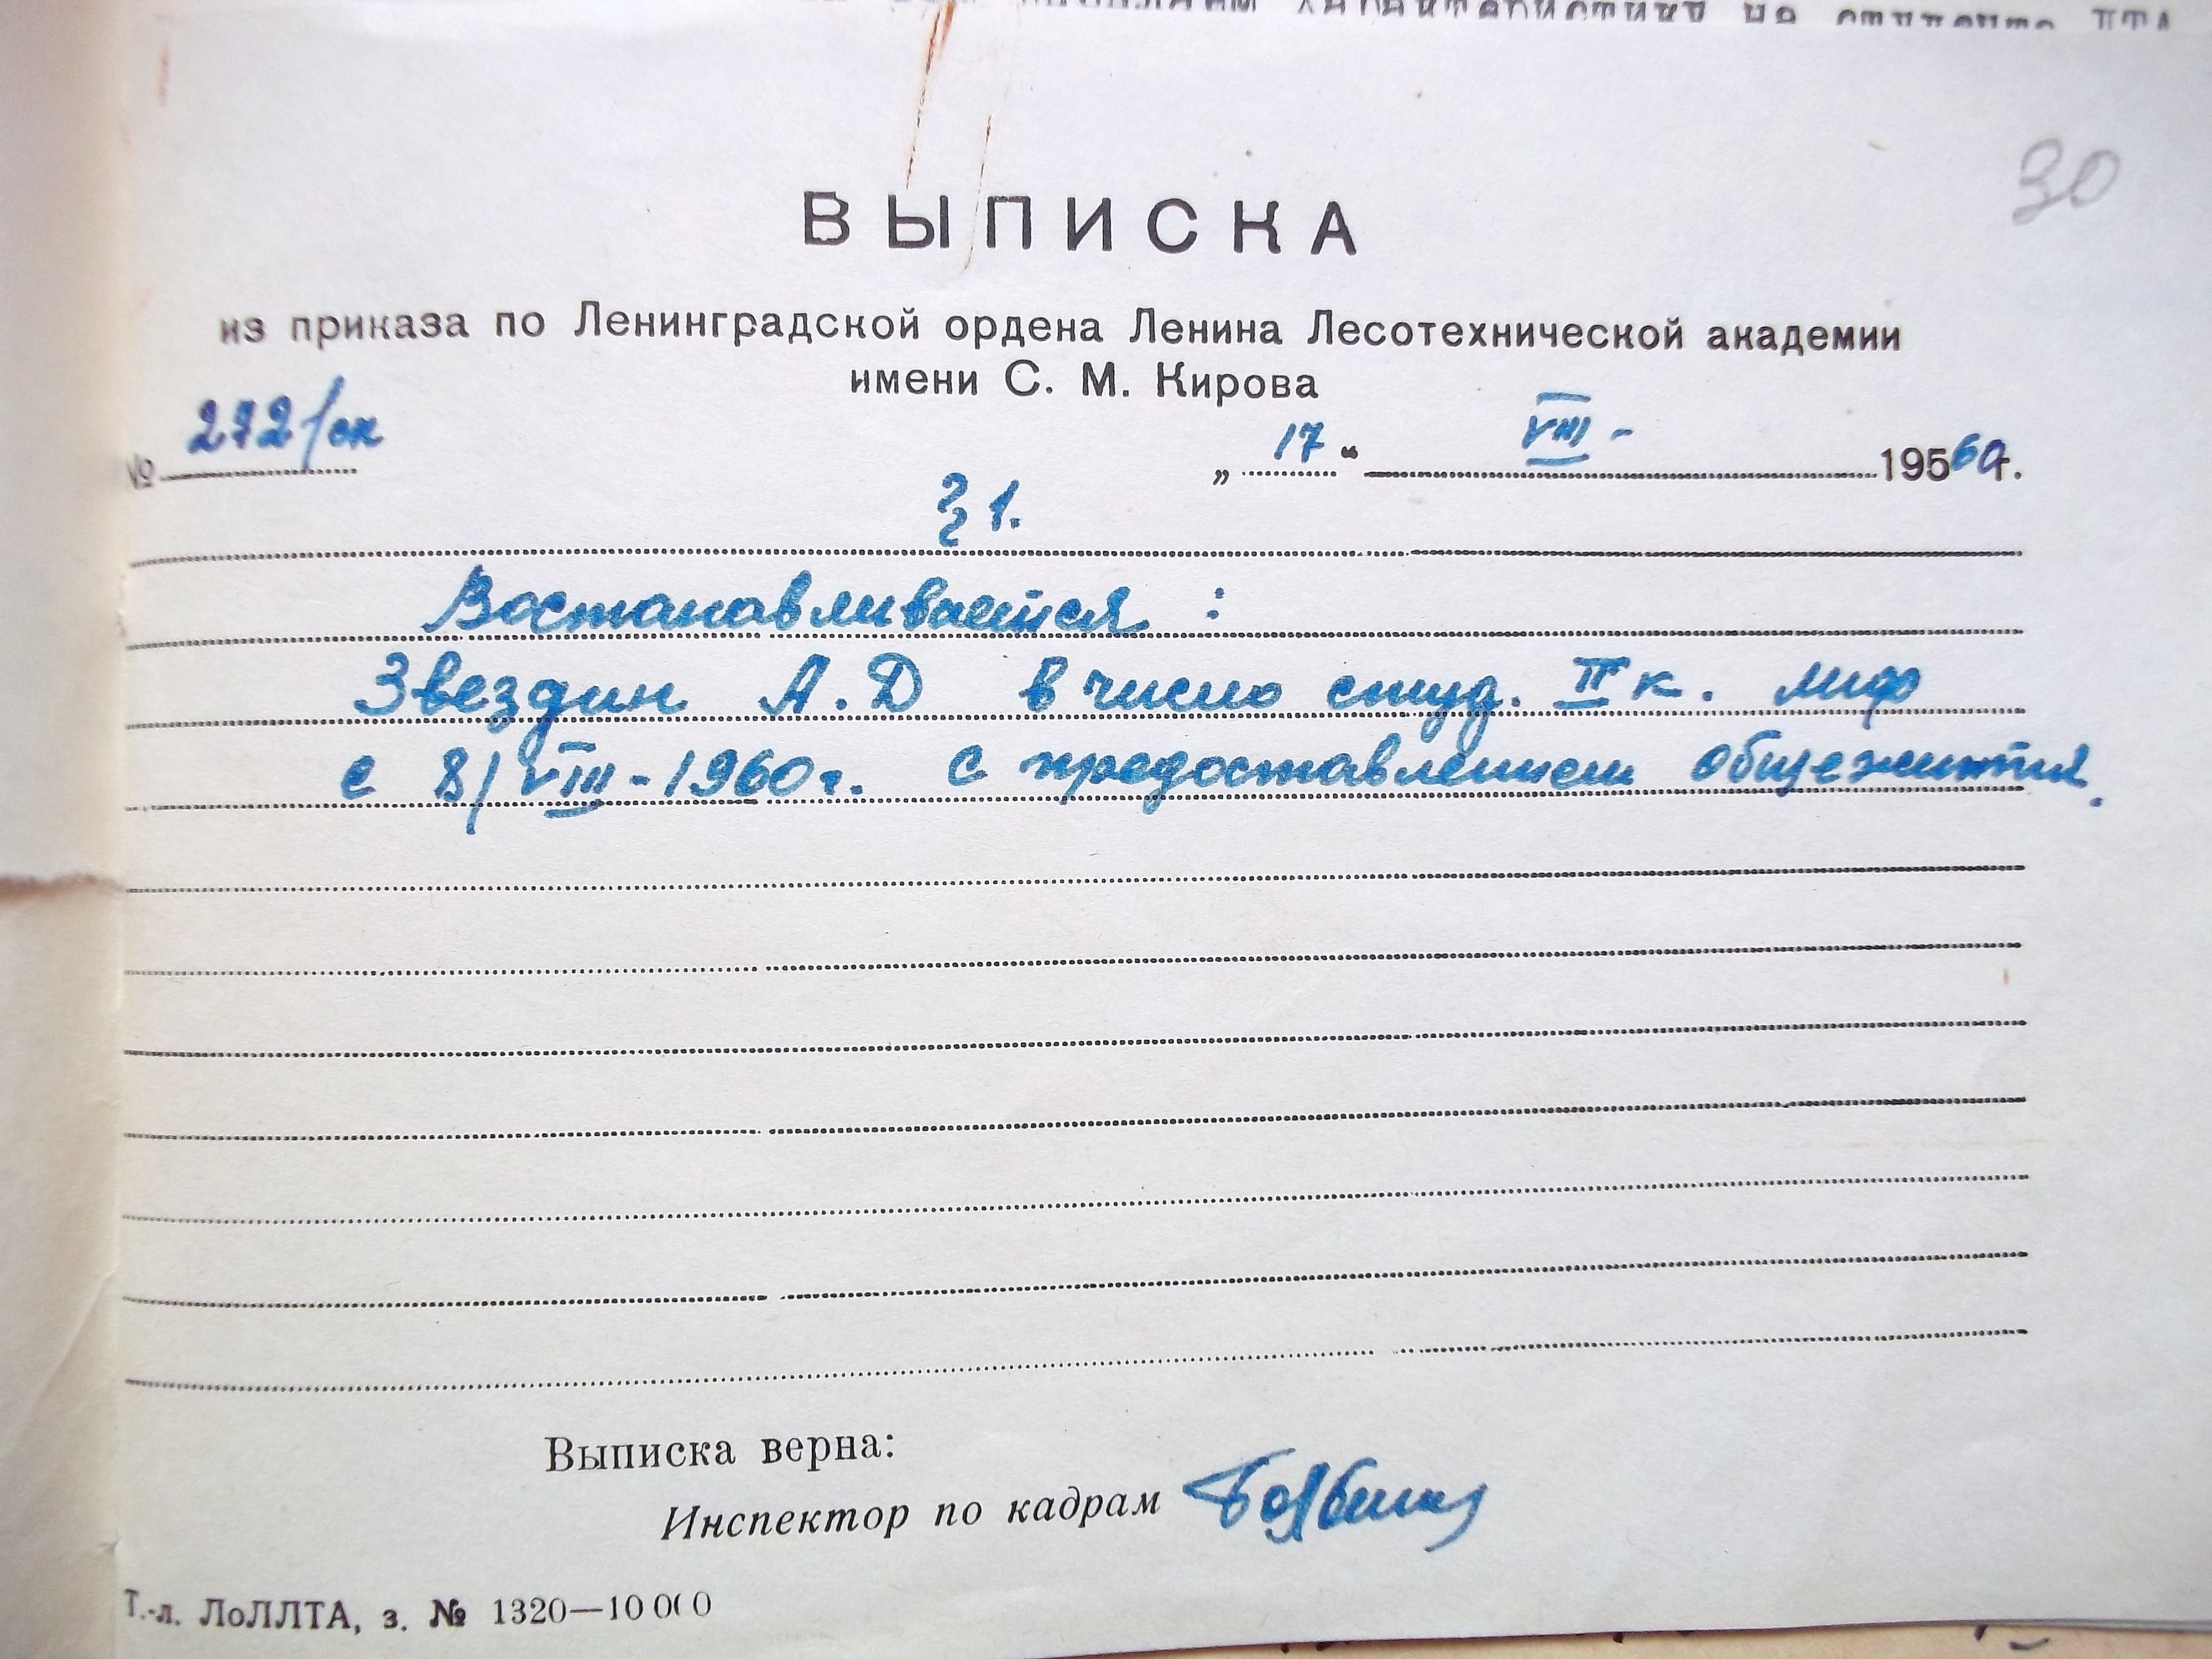 30
ВЫПИСКА
из приказа по Ленинградской ордена Ленина Лесотехнической академии
имени С. М. Кирова
№ 272/ск „ 17 “ VIII - 195 60г.
§ 1.
Востанавливается :
Звездин А.Д в число студ. II к. лиф
с 8/VIII-1960г. с предоставлением общежития.
Выписка верна:
Инспектор по кадрам
Т.-л. ЛоЛЛТА, з. № 1320—10 000